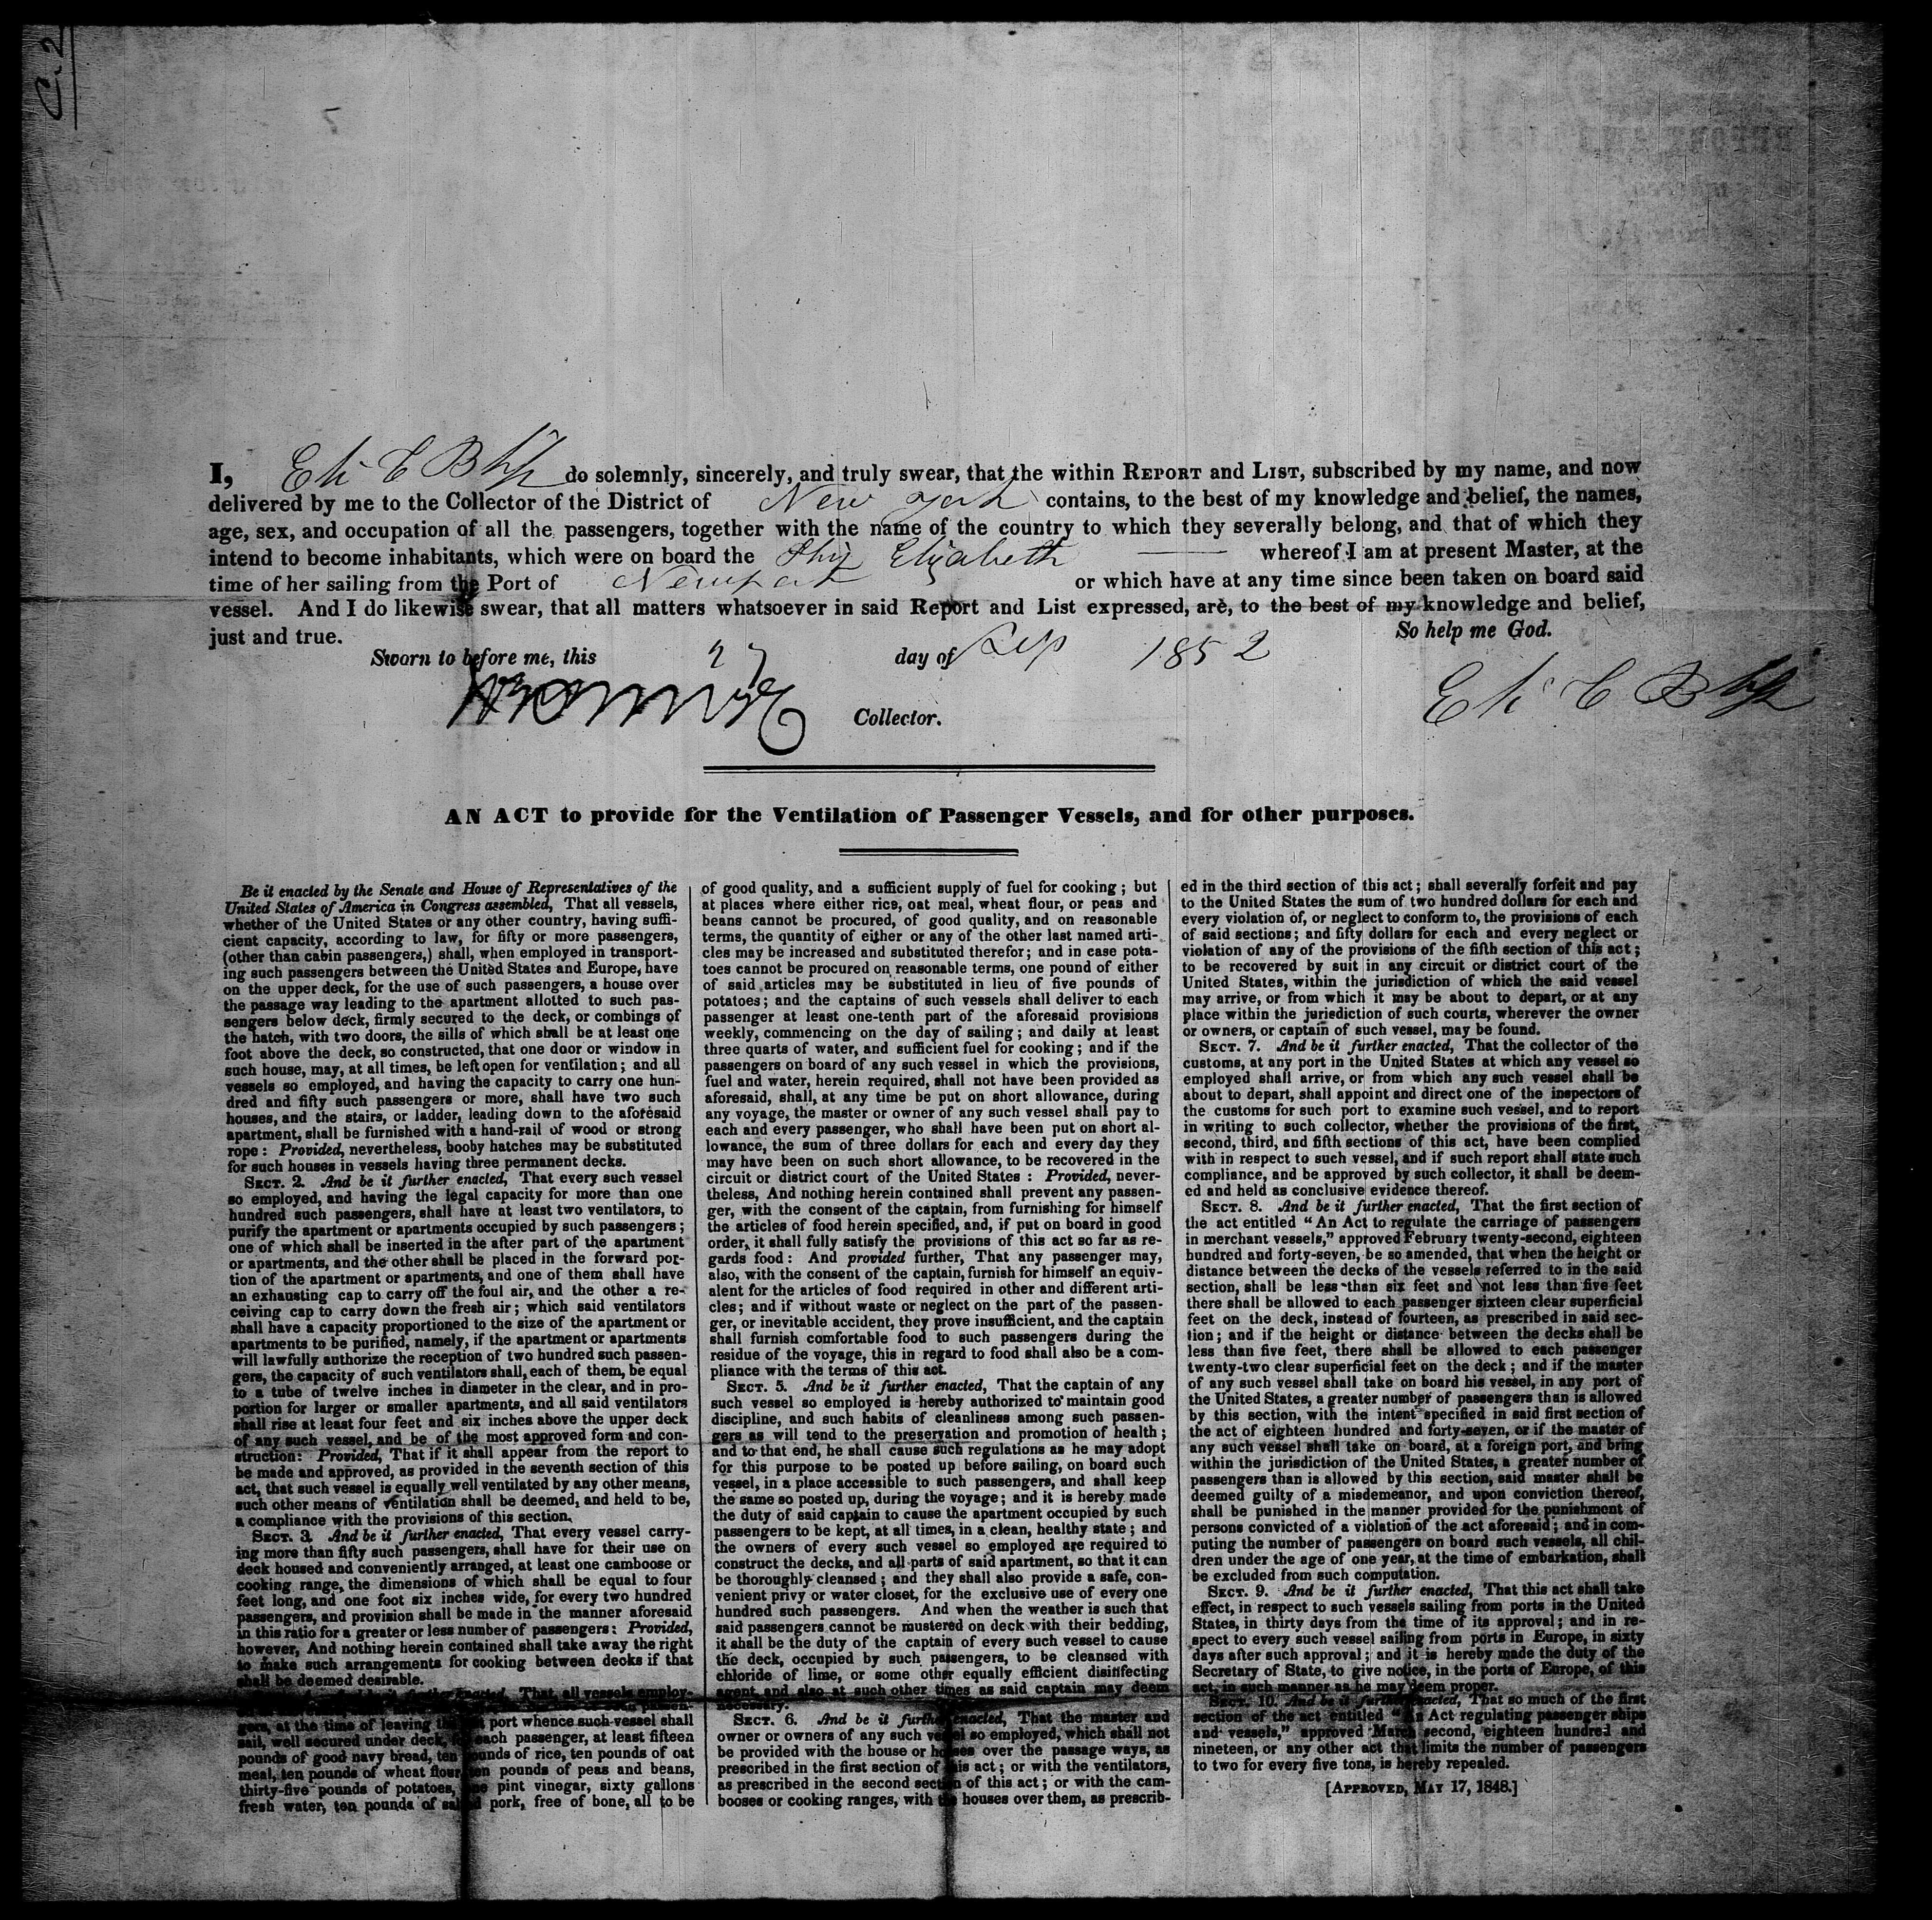 C. 2
I, Eli C Bliss do solemnly, sincerely, and truly swear, that the within REPORT and LIST, subscribed by my name, and now
delivered by me to the Collector of the District of New York contains, to the best of my knowledge and belief, the names,
age, sex, and occupation of all the passengers, together with the name of the country to which they severally belong, and that of which they
intend to become inhabitants, which were on board the Ship Elizabeth whereof I am at present Master, at the
time of her sailing from the Port of Newport or which have at any time since been taken on board said
vessel. And I do likewise swear, that all matters whatsoever in said Report and List expressed, are, to the best of my knowledge and belief,
just and true. So help me God.
Sworn to before me, this 27 day of Sep 1852
Collector. Eli C Bliss
AN ACT to provide for the Ventilation of Passenger Vessels, and for other purposes.
Be it enacted by the Senate and House of Representatives of the
United States of America in Congress assembled, That all vessels,
whether of the United States or any other country, having suffi-
cient capacity, according to law, for fifty or more passengers,
(other than cabin passengers,) shall, when employed in transport-
ing such passengers between the United States and Europe, have
on the upper deck, for the use of such passengers, a house over
the passage way leading to the apartment allotted to such pas-
sengers below deck, firmly secured to the deck, or combings of
the hatch, with two doors, the sills of which shall be at least one
foot above the deck, so constructed, that one door or window in
such house, may, at all times, be left open for ventilation; and all
vessels so employed, and having the capacity to carry one hun-
dred and fifty such passengers or more, shall have two such
houses, and the stairs, or ladder, leading down to the aforesaid
apartment, shall be furnished with a hand-rail of wood or strong
rope: Provided, nevertheless, booby hatches may be substituted
for such houses in vessels having three permanent decks.
SECT. 2. And be it further enacted, That every such vessel
so employed, and having the legal capacity for more than one
hundred such passengers, shall have at least two ventilators, to
purify the apartment or apartments occupied by such passengers;
one of which shall be inserted in the after part of the apartment
or apartments, and the other shall be placed in the forward por-
tion of the apartment or apartments, and one of them shall have
an exhausting cap to carry off the foul air, and the other a re-
ceiving cap to carry down the fresh air; which said ventilators
shall have a capacity proportioned to the size of the apartment or
apartments to be purified, namely, if the apartment or apartments
will lawfully authorize the reception of two hundred such passen-
gers, the capacity of such ventilators shall, each of them, be equal
to a tube of twelve inches in diameter in the clear, and in pro-
portion for larger or smaller apartments, and all said ventilators
shall rise at least four feet and six inches above the upper deck
of any such vessel, and be of the most approved form and con-
struction: Provided, That if it shall appear from the report to
be made and approved, as provided in the seventh section of this
act, that such vessel is equally well ventilated by any other means,
such other means of ventilation shall be deemed, and held to be,
a compliance with the provisions of this section.
SECT. 3. And be it further enacted, That every vessel carry-
ing more than fifty such passengers, shall have for their use on
deck housed and conveniently arranged, at least one camboose or
cooking range, the dimensions of which shall be equal to four
feet long, and one foot six inches wide, for every two hundred
passengers, and provision shall be made in the manner aforesaid
in this ratio for a greater or less number of passengers: Provided,
however, And nothing herein contained shall take away the right
to make such arrangements for cooking between decks if that
shall be deemed desirable.
further enacted, That all vessels employ-
gers, at the time of leaving the port whence such vessel shall
sail, well secured under deck, for each passenger, at least fifteen
pounds of good navy bread, ten pounds of rice, ten pounds of oat
meal, ten pounds of wheat flour, ten pounds of peas and beans,
thirty-five pounds of potatoes, one pint vinegar, sixty gallons
fresh water, ten pounds of salted pork, free of bone, all to be
of good quality, and a sufficient supply of fuel for cooking; but
at places where either rice, oat meal, wheat flour, or peas and
beans cannot be procured, of good quality, and on reasonable
terms, the quantity of either or any of the other last named arti-
cles may be increased and substituted therefor; and in case pota-
toes cannot be procured on reasonable terms, one pound of either
of said articles may be substituted in lieu of five pounds of
potatoes; and the captains of such vessels shall deliver to each
passenger at least one-tenth part of the aforesaid provisions
weekly, commencing on the day of sailing; and daily at least
three quarts of water, and sufficient fuel for cooking; and if the
passengers on board of any such vessel in which the provisions,
fuel and water, herein required, shall not have been provided as
aforesaid, shall, at any time be put on short allowance, during
any voyage, the master or owner of any such vessel shall pay to
each and every passenger, who shall have been put on short al-
lowance, the sum of three dollars for each and every day they
may have been on such short allowance, to be recovered in the
circuit or district court of the United States: Provided, never-
theless, And nothing herein contained shall prevent any passen-
ger, with the consent of the captain, from furnishing for himself
the articles of food herein specified, and, if put on board in good
order, it shall fully satisfy the provisions of this act so far as re-
gards food: And provided further, That any passenger may,
also, with the consent of the captain, furnish for himself an equiv-
alent for the articles of food required in other and different arti-
cles; and if without waste or neglect on the part of the passen-
ger, or inevitable accident, they prove insufficient, and the captain
shall furnish comfortable food to such passengers during the
residue of the voyage, this in regard to food shall also be a com-
pliance with the terms of this act.
SECT. 5. And be it further enacted, That the captain of any
such vessel so employed is hereby authorized to maintain good
discipline, and such habits of cleanliness among such passen-
gers as will tend to the preservation and promotion of health;
and to that end, he shall cause such regulations as he may adopt
for this purpose to be posted up before sailing, on board such
vessel, in a place accessible to such passengers, and shall keep
the same so posted up, during the voyage; and it is hereby made
the duty of said captain to cause the apartment occupied by such
passengers to be kept, at all times, in a clean, healthy state; and
the owners of every such vessel so employed are required to
construct the decks, and all parts of said apartment, so that it can
be thoroughly cleansed; and they shall also provide a safe, con-
venient privy or water closet, for the exclusive use of every one
hundred such passengers. And when the weather is such that
said passengers cannot be mustered on deck with their bedding,
it shall be the duty of the captain of every such vessel to cause
the deck, occupied by such passengers, to be cleansed with
chloride of lime, or some other equally efficient disinfecting
agent, and also at such other times as said captain may deem
necessary.
SECT. 6. And be it further enacted, That the master and
owner or owners of any such vessel so employed, which shall not
be provided with the house or houses over the passage ways, as
prescribed in the first section of this act; or with the ventilators,
as prescribed in the second section of this act; or with the cam-
booses or cooking ranges, with the houses over them, as prescrib-
ed in the third section of this act; shall severally forfeit and pay
to the United States the sum of two hundred dollars for each and
every violation of, or neglect to conform to, the provisions of each
of said sections; and fifty dollars for each and every neglect or
violation of any of the provisions of the fifth section of this act;
to be recovered by suit in any circuit or district court of the
United States, within the jurisdiction of which the said vessel
may arrive, or from which it may be about to depart, or at any
place within the jurisdiction of such courts, wherever the owner
or owners, or captain of such vessel, may be found.
SECT. 7. And be it further enacted, That the collector of the
customs, at any port in the United States at which any vessel so
employed shall arrive, or from which any such vessel shall be
about to depart, shall appoint and direct one of the inspectors of
the customs for such port to examine such vessel, and to report
in writing to such collector, whether the provisions of the first,
second, third, and fifth sections of this act, have been complied
with in respect to such vessel, and if such report shall state such
compliance, and be approved by such collector, it shall be deem-
ed and held as conclusive evidence thereof.
SECT. 8. And be it further enacted, That the first section of
the act entitled "An Act to regulate the carriage of passengers
in merchant vessels," approved February twenty-second, eighteen
hundred and forty-seven, be so amended, that when the height or
distance between the decks of the vessels referred to in the said
section, shall be less than six feet and not less than five feet
there shall be allowed to each passenger sixteen clear superficial
feet on the deck, instead of fourteen, as prescribed in said sec-
tion; and if the height or distance between the decks shall be
less than five feet, there shall be allowed to each passenger
twenty-two clear superficial feet on the deck; and if the master
of any such vessel shall take on board his vessel, in any port of
the United States, a greater number of passengers than is allowed
by this section, with the intent specified in said first section of
the act of eighteen hundred and forty-seven, or if the master of
any such vessel shall take on board, at a foreign port, and bring
within the jurisdiction of the United States, a greater number of
passengers than is allowed by this section, said master shall be
deemed guilty of a misdemeanor, and upon conviction thereof,
shall be punished in the manner provided for the punishment of
persons convicted of a violation of the act aforesaid; and in com-
puting the number of passengers on board such vessels, all chil-
dren under the age of one year, at the time of embarkation, shall
be excluded from such computation.
SECT. 9. And be it further enacted, That this act shall take
effect, in respect to such vessels sailing from ports in the United
States, in thirty days from the time of its approval; and in re-
spect to every such vessel sailing from ports in Europe, in sixty
days after such approval; and it is hereby made the duty of the
Secretary of State, to give notice, in the ports of Europe, of this
act, in such manner as he may deem proper.
SECT. 10. And be it further enacted, That so much of the first
section of the act entitled "An Act regulating passenger ships
and vessels," approved March second, eighteen hundred and
nineteen, or any other act that limits the number of passengers
to two for every five tons, is hereby repealed.
[APPROVED, MAY 17, 1848.]